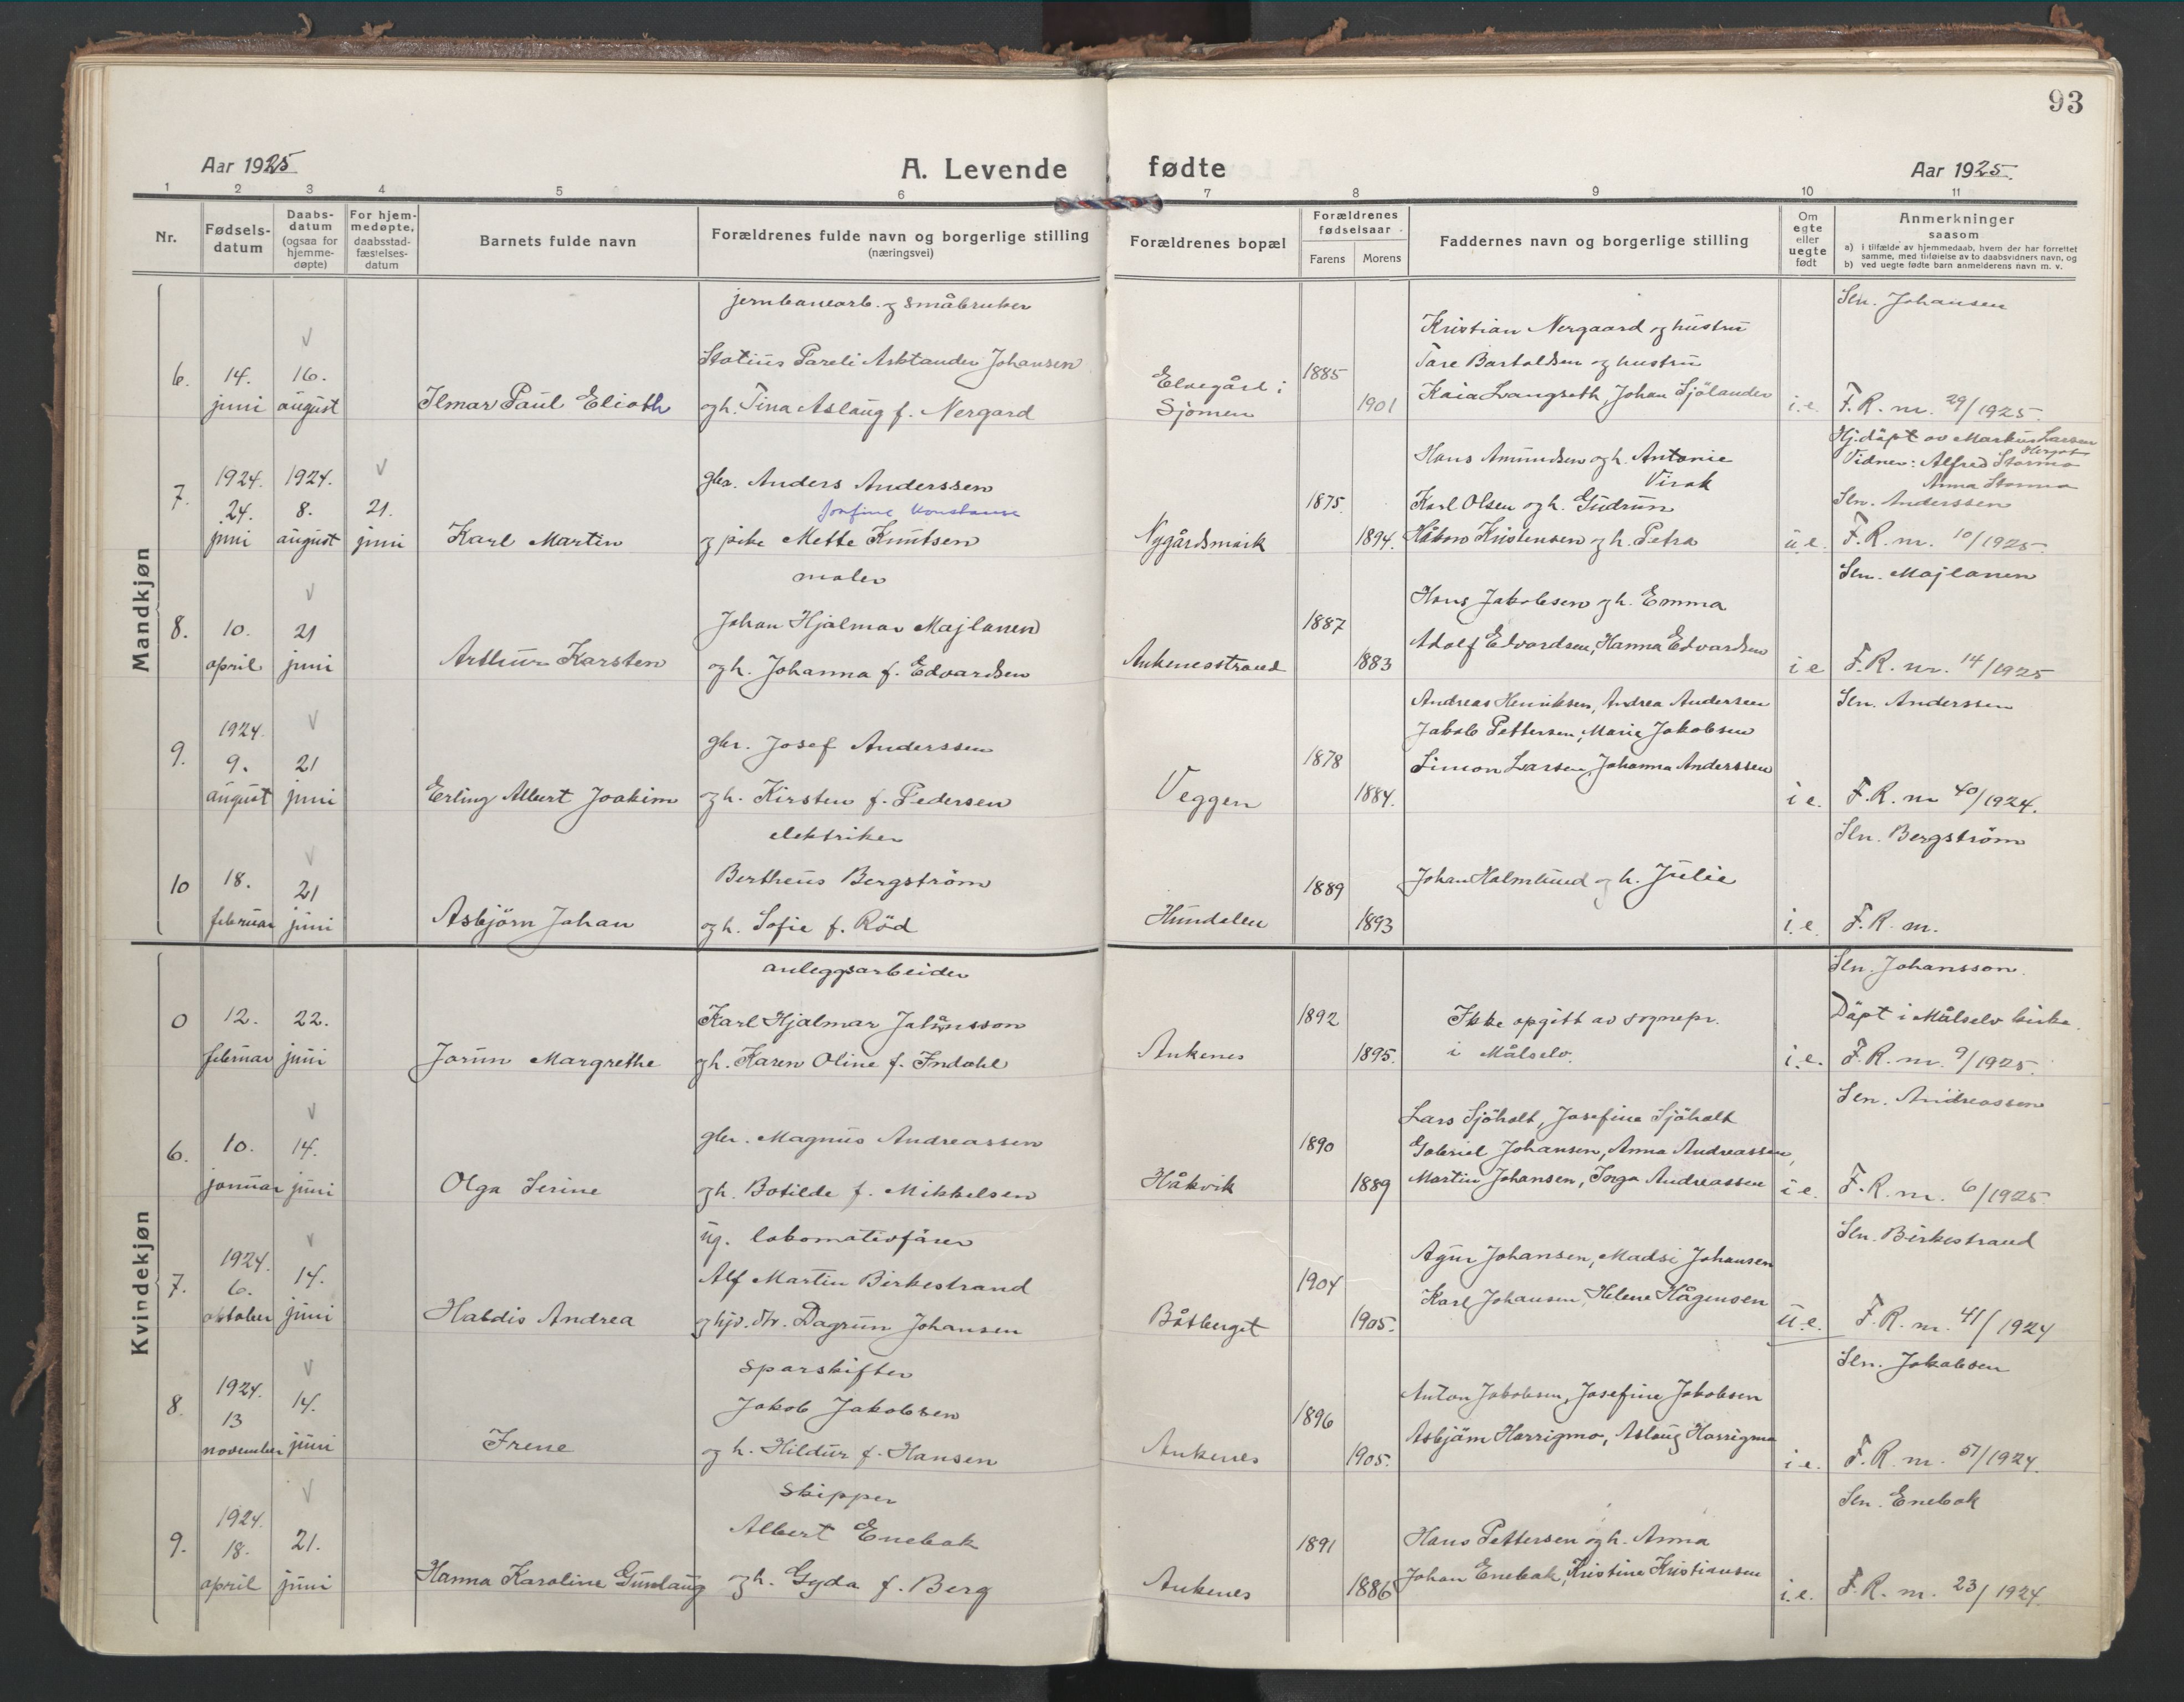 93
Aar 1925
A. Levende fødte
Aar 1925.
1 2 3 4 5 6 7 8 9 10 11
Nr.
Fødsels-
datum
Daabs-
datum
(ogsaa for
hjemme-
døpte)
For hjem-
medøpte,
daabsstad-
fæstelses-
datum
Barnets fulde navn
Forældrenes fulde navn og borgerlige stilling
(næringsvei)
Forældrenes bopæl
Forældrenes
fødselsaar
Farens Morens
Faddernes navn og borgerlige stilling
Om
egte
eller
uegte
født
Anmerkninger
saasom
a) i tilfælde av hjemmedaab, hvem der har forrettet
samme, med tilføielse av to daabsvidners navn, og
b) ved uegte fødte barn anmelderens navn m. v.
Mandkjøn
6.
14.
juni
16.
august
Ilmar Paul Elioth
jernbanearb. og småbruker
Statius Pareli Johansen
og h. Tina Aslaug f. Nergard
Elvegård i
Sjomen
1885
1901
Kristian Nergaard og hustru
Tare Bartoldsen og hustru
Kaia Langseth, Johan Sjölander
i.e.
Sln. Johansen
F.R. nr. 29/1925.
7.
1924.
24.
juni
1924.
8.
august
21.
juni
Karl Martin
gbr. Anders Anderssen
Josfine Konstanse
og pike Mette Knutsen
Nygårdsmark
1875.
1894.
Hans Amundsen og h. Antonie
Virak
Karl Olsen og h. Gudrun
Håkon Kristensen og h. Petra
u.e.
Hj.døpt av Markus Larsen
Hergot
Vidner: Alfred Stormo
Anna Stormo
Sln. Anderssen
F.R. nr. 10/1925.
8.
10.
april
21
juni
Arthur Karsten
maler
Johan Hjalmar Majlanen
og h. Johanna f. Edvardsen
Ankenesstrand
1887
1883
Hans Jakobsen og h. Emma
Adolf Edvardsen, Hanna Edvardsen
i e
Sln. Majlanen
F.R. nr. 14/1925
9.
1924.
9.
august
21
juni
Erling Albert Joakim
gbr. Josef Anderssen
og h. Kirsten f. Pedersen
Veggen
1878
1884.
Andreas Henriksen, Andrea Andersen
Jakob Pettersen, Marie Jakobsen
Simon Larsen, Johanna Anderssen
i e.
Sln. Anderssen
F.R. nr 40/1924.
10
18.
februar
21
juni
Asbjörn Johan
elektriker
Bertheus Bergström
og h. Sofie f. Röd
Hundalen
1889
1893
Johan Holmlund og h. Julie
i.e.
Sln. Bergström
F.R. nr.
Kvindekjøn
0
12.
februar
22.
juni
Jorun Margrethe
anleggsarbeider
Karl Hjalmar Johansson
og h. Karen Oline f. Indahl
Ankenes
1892
1895.
Ikke opgitt av sognepr.
i Målselv.
i.e.
Sln. Johansson.
Døpt i Målselv kirke.
F.R. nr. 9/1925.
6.
10.
januar
14.
juni
Olga Serine
gbr. Magnus Andreassen
og h. Botilde f. Mikkelsen
Håkvik
1890
1889
Lars Sjöholt, Josefine Sjöholt
Gabriel Johansen, Anna Andreassen,
Martin Johansen, Inga Andreassen
i e.
Sln. Andreassen
F.R. nr. 6/1925.
7.
1924.
6.
oktober
14.
juni
Haldis Andrea
ug. lokomotivfører
Alf Martin Birkestrand
og hjv. dtr. Dagrun Johansen
Båtberget
1904
1905.
Agur Johansen, Madsi Johansen
Karl Johansen, Helene Hågensen
u.e.
Sln. Birkestrand
F.R. nr. 41/1924
8.
1924.
13
november
14.
juni
Irene
sporskifter
Jakob Jakobsen
og h. Hildur f. Hansen
Ankenes
1896
1905.
Anton Jakobsen, Josefine Jakobsen
Asbjörn Harrigmo, Aslaug Harrigmo
i.e.
Sln. Jakobsen
F.R. nr. 51/1924.
9.
1924.
18.
april
21.
juni
Hanna Karoline Gunlaug
skipper
Albert Enebak
og h. Gyda f. Berg
Ankenes
1891
1886
Hans Pettersen og h. Anna
Johan Enebak, Kristine Kristiansen
i.e.
Sln. Enebak
F.R. nr. 23/1924.